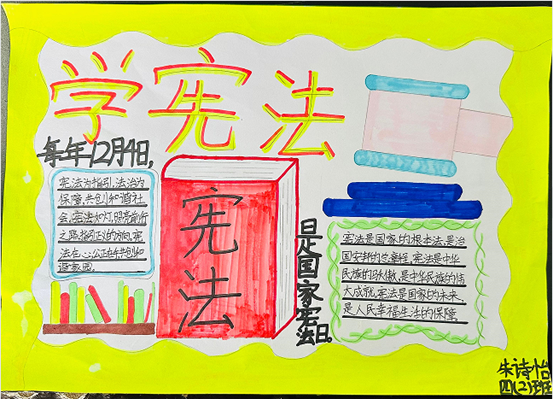 学宪法
每年12月4日,
宪法为指引,法治为
保障,共创和谐社
会,宪法如灯,照亮前行
之路,指引正义的方向,宪
法在心,公正在行,共创和
谐家园。
宪法
是国家宪法日。
宪法是国家的根本法,是治
国安邦的总章程,宪法是中华
民族的骄傲,是中华民族的伟
大成就,宪法是国家的未来,
是人民幸福生活的保障。
朱诗怡
四(2)班